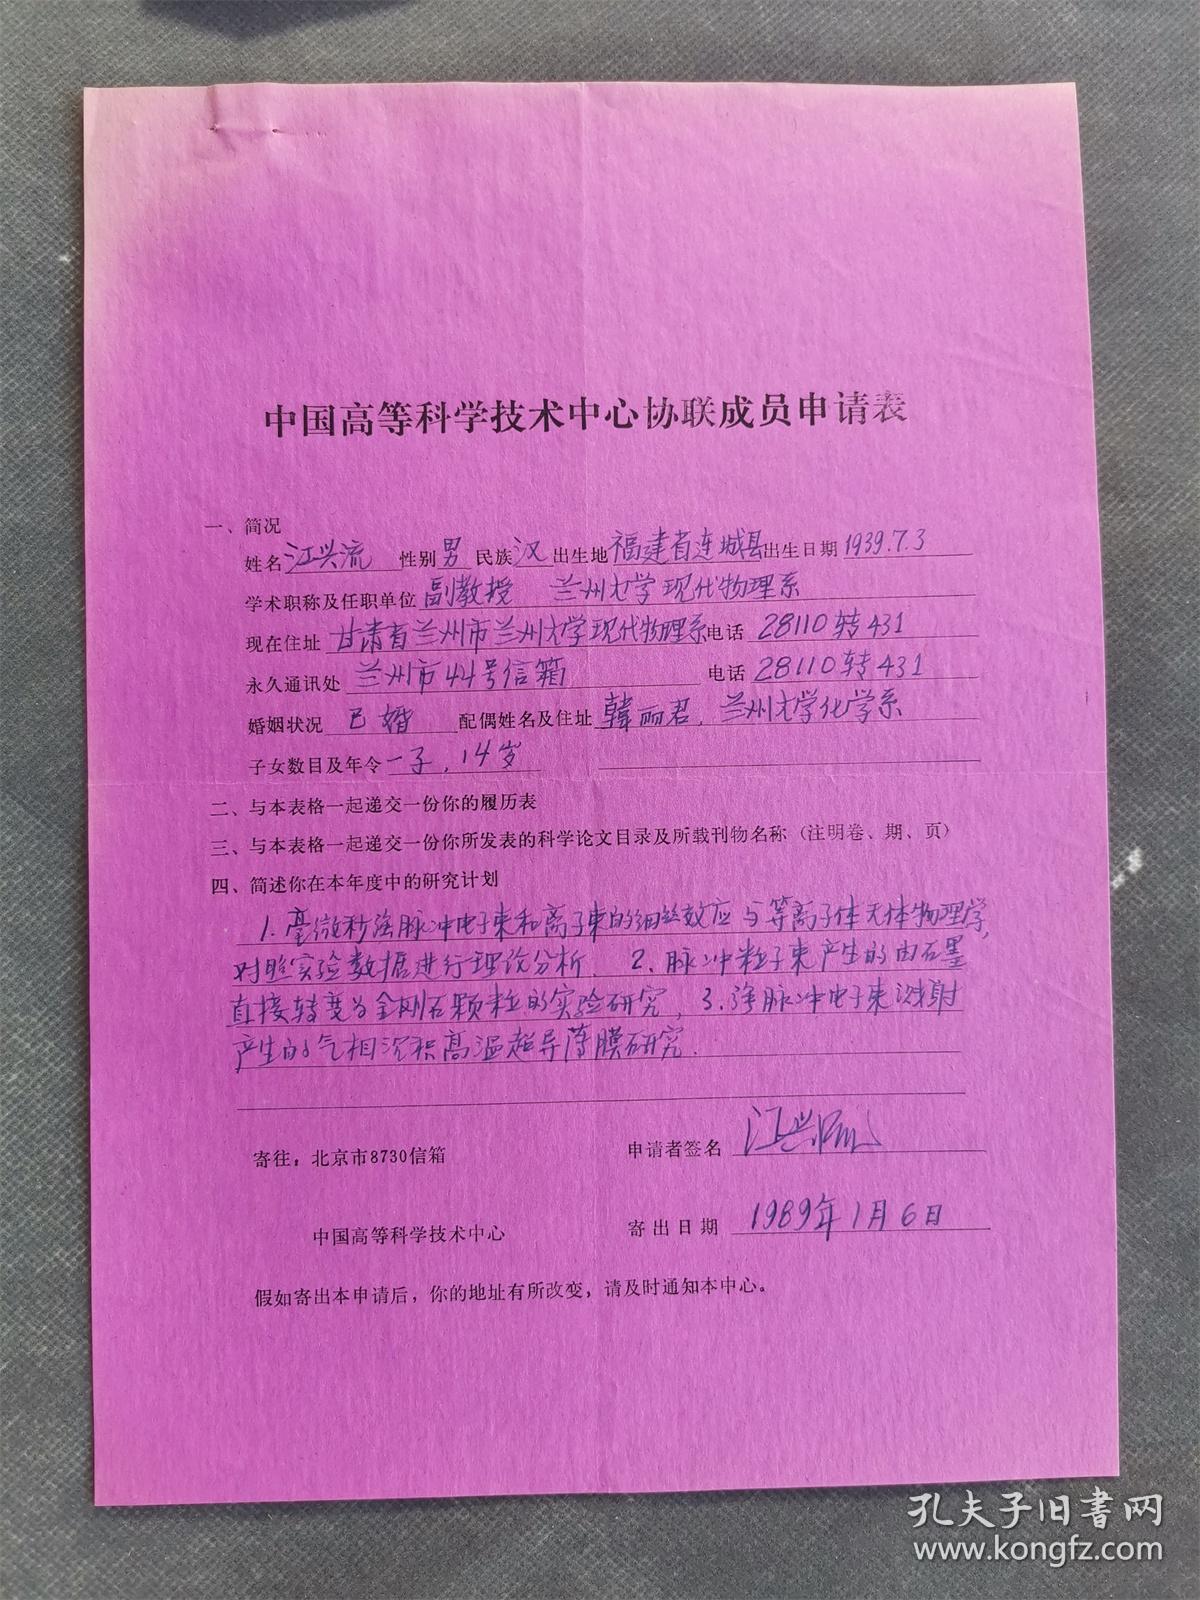 中国高等科学技术中心协联成员申请表
一、简况
姓名 江兴流 性别 男 民族 汉 出生地 福建省连城县 出生日期 1939.7.3
学术职称及任职单位 副教授 兰州大学现代物理系
现在住址 甘肃省兰州市兰州大学现代物理系 电话 28110转431
永久通讯处 兰州市44号信箱 电话 28110转431
婚姻状况 已婚 配偶姓名及住址 韩丽君，兰州大学化学系
子女数目及年令 一子，14岁
二、与本表格一起递交一份你的履历表
三、与本表格一起递交一份你所发表的科学论文目录及所载刊物名称（注明卷、期、页）
四、简述你在本年度中的研究计划
1.毫微秒强脉冲电子束和离子束的细丝效应与等离子体天体物理学，
对照实验数据进行理论分析．2．脉冲粒子束产生的由石墨
直接转变为金刚石颗粒的实验研究，3.强脉冲电子束溅射
产生的气相沉积高温超导薄膜研究．
寄往：北京市8730信箱 申请者签名 江兴流
中国高等科学技术中心 寄出日期 1989年1月6日
假如寄出本申请后，你的地址有所改变，请及时通知本中心。
孔夫子旧书网
www.kongfz.com